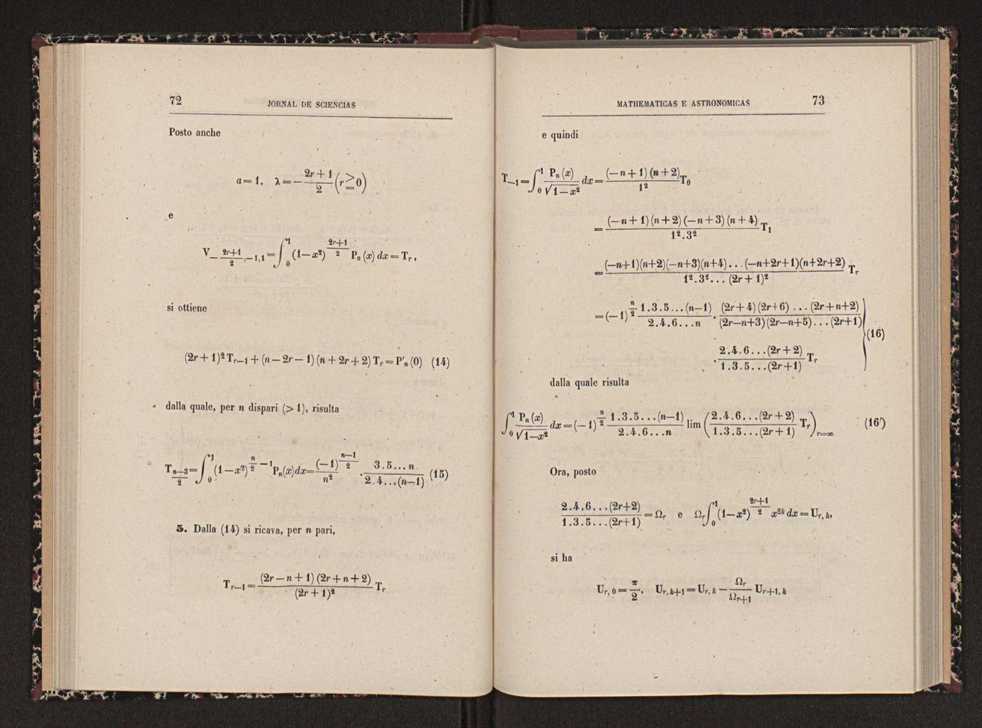 72 JORNAL DE SCIENCIAS
Posto anche
a = 1, λ = − (2r + 1)/2 (r ≧ 0)
e
V_{−(2r+1)/2, −1, 1} = ∫_0^1 (1−x²)^{(2r+1)/2} P_n (x) dx = T_r,
si ottiene
(2r + 1)² T_{r−1} + (n − 2r − 1) (n + 2r + 2) T_r = P'_n (0) (14)
dalla quale, per n dispari (> 1), risulta
T_{(n−3)/2} = ∫_0^1 (1−x²)^{n/2 − 1} P_n(x) dx = (−1)^{(n−1)/2}/n² . 3.5...n/2.4...(n−1) (15)
5. Dalla (14) si ricava, per n pari,
T_{r−1} = (2r − n + 1) (2r + n + 2)/(2r + 1)² T_r
MATHEMATICAS E ASTRONOMICAS 73
e quindi
T_{−1} = ∫_0^1 P_n (x)/√(1−x²) dx = (−n + 1) (n + 2)/1² T_0
= (−n + 1) (n + 2) (−n + 3) (n + 4)/1².3² T_1
= (−n+1)(n+2)(−n+3)(n+4)...(−n+2r+1)(n+2r+2)/1².3²...(2r + 1)² T_r
= (−1)^{n/2} 1.3.5...(n−1)/2.4.6...n . (2r+4)(2r+6)...(2r+n+2)/(2r−n+3)(2r−n+5)...(2r+1)
. 2.4.6...(2r+2)/1.3.5...(2r+1) T_r } (16)
dalla quale risulta
∫_0^1 P_n (x)/√(1−x²) dx = (−1)^{n/2} 1.3.5...(n−1)/2.4.6...n lim (2.4.6...(2r + 2)/1.3.5...(2r + 1) T_r)_{r=∞} (16')
Ora, posto
2.4.6...(2r+2)/1.3.5...(2r+1) = Ω_r e Ω_r ∫_0^1 (1−x²)^{(2r+1)/2} x^{2k} dx = U_{r, k},
si ha
U_{r, 0} = π/2, U_{r, k+1} = U_{r, k} − Ω_r/Ω_{r+1} U_{r+1, k}